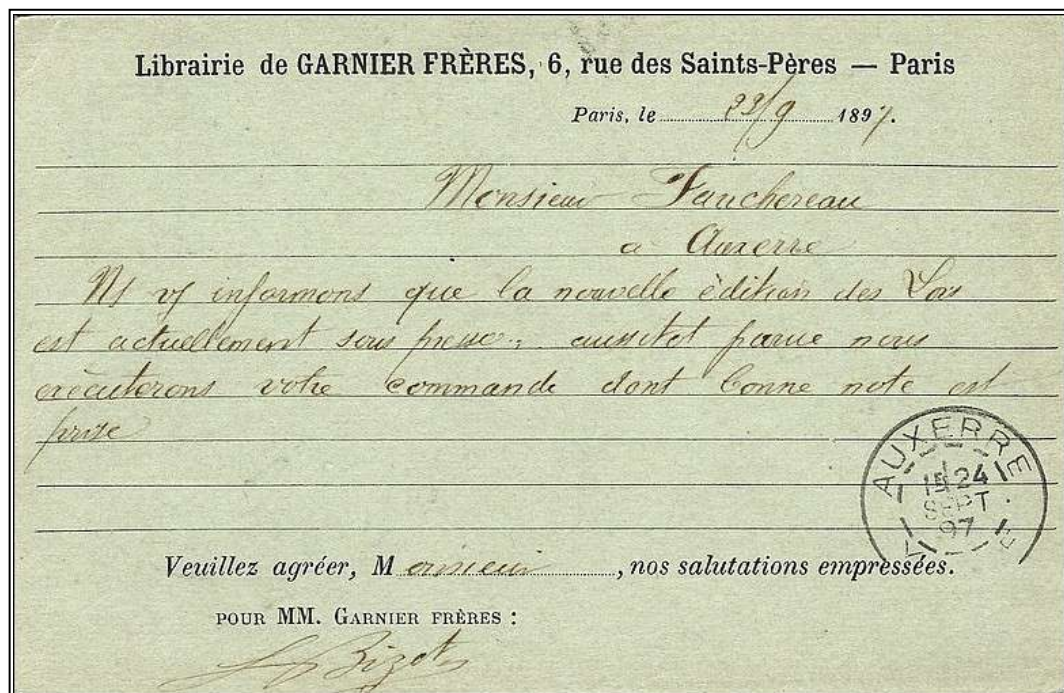 Librairie de GARNIER FRÈRES, 6, rue des Saints-Pères — Paris
Paris, le 23/9 1897.
Monsieur Fauchereau
a Auxerre
Ns vs informons que la nouvelle édition des Lois
est actuellement sous presse, aussitot parue nous
exécuterons votre commande dont bonne note est
prise
AUXERRE
24
SEPT
97
Veuillez agréer, Monsieur, nos salutations empressées.
POUR MM. GARNIER FRÈRES :
Bizot